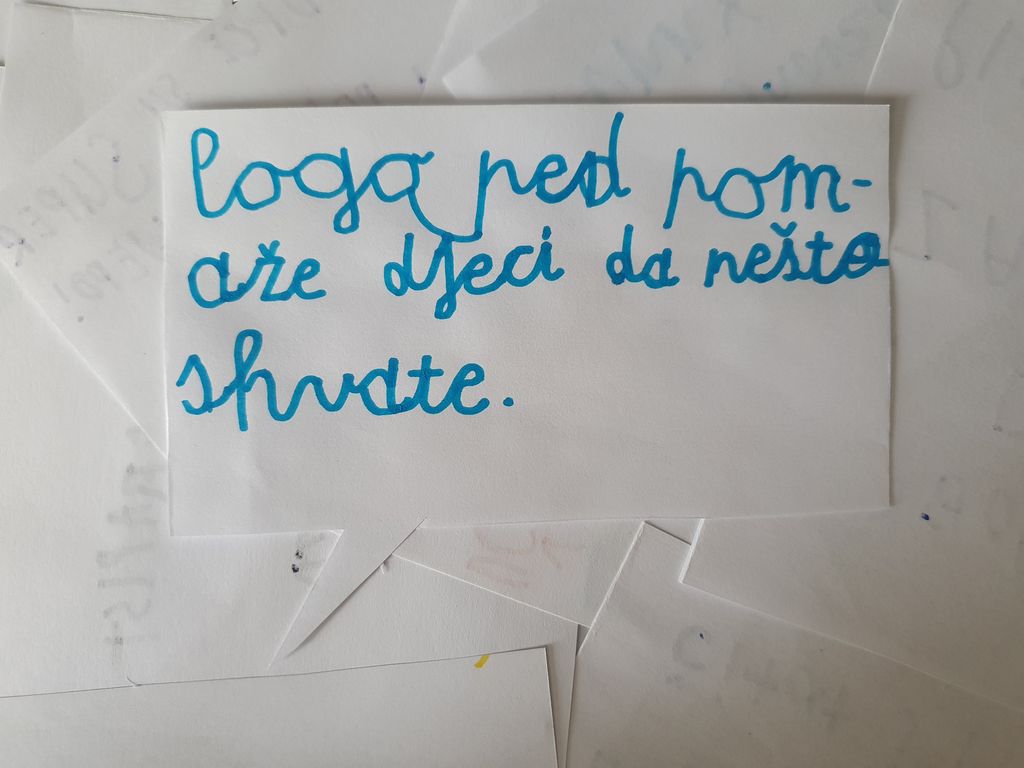 loga ped pom-
aže djeci da nešto
shvate.